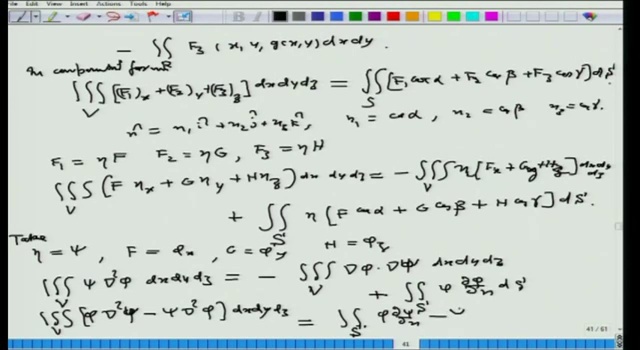 File Edit View Insert Actions Tools Help
- ∬_R F₃ (x, y, g(x,y)) dx dy.
In component form
∭_V [(F₁)_x + (F₂)_y + (F₃)_z] dx dy dz = ∬_S [F₁ cos α + F₂ cos β + F₃ cos γ] dS
n̂ = n₁ î + n₂ ĵ + n₃ k̂, n₁ = cos α, n₂ = cos β n₃ = cos γ.
F₁ = ηF F₂ = ηG, F₃ = ηH
∭_V (F η_x + G η_y + H η_z) dx dy dz = - ∭_V η [F_x + G_y + H_z] dx dy dz
+ ∬_S η [F cos α + G cos β + H cos γ] dS.
Take η = ψ, F = φ_x, G = φ_y H = φ_z
∭_V ψ ∇²φ dx dy dz = - ∭_V ∇φ · ∇ψ dx dy dz
+ ∬_S ψ ∂φ/∂n dS
∭_V [φ ∇²ψ - ψ ∇²φ] dx dy dz = ∬_S φ ∂ψ/∂n -
41 / 61
41